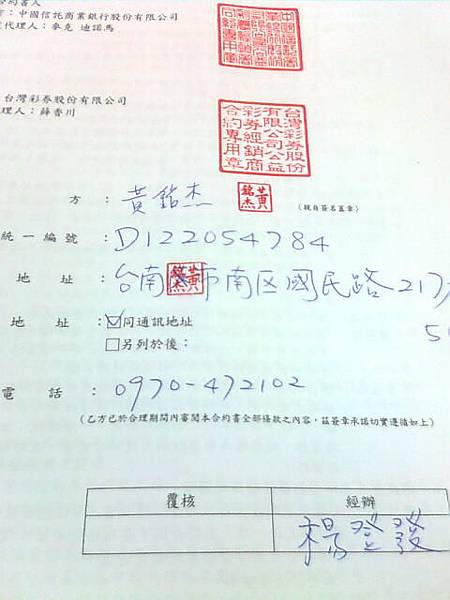 約書人
：中國信託商業銀行股份有限公司
代理人：麥克 迪諾馬
台灣彩券股份有限公司
理人：薛香川
台灣彩券股份
有限公司公益
彩券經銷商
合約專用章
方：黃銘杰 黃銘杰 （親自簽名蓋章）
統一編號：D122054784
地址：台南市南区國民路217
地址：☑同通訊地址
□另列於後：
電話：0970-472102
（乙方已於合理期間內審閱本合約書全部條款之內容，茲簽章承諾切實遵循如上）
覆核 經辦
楊登發